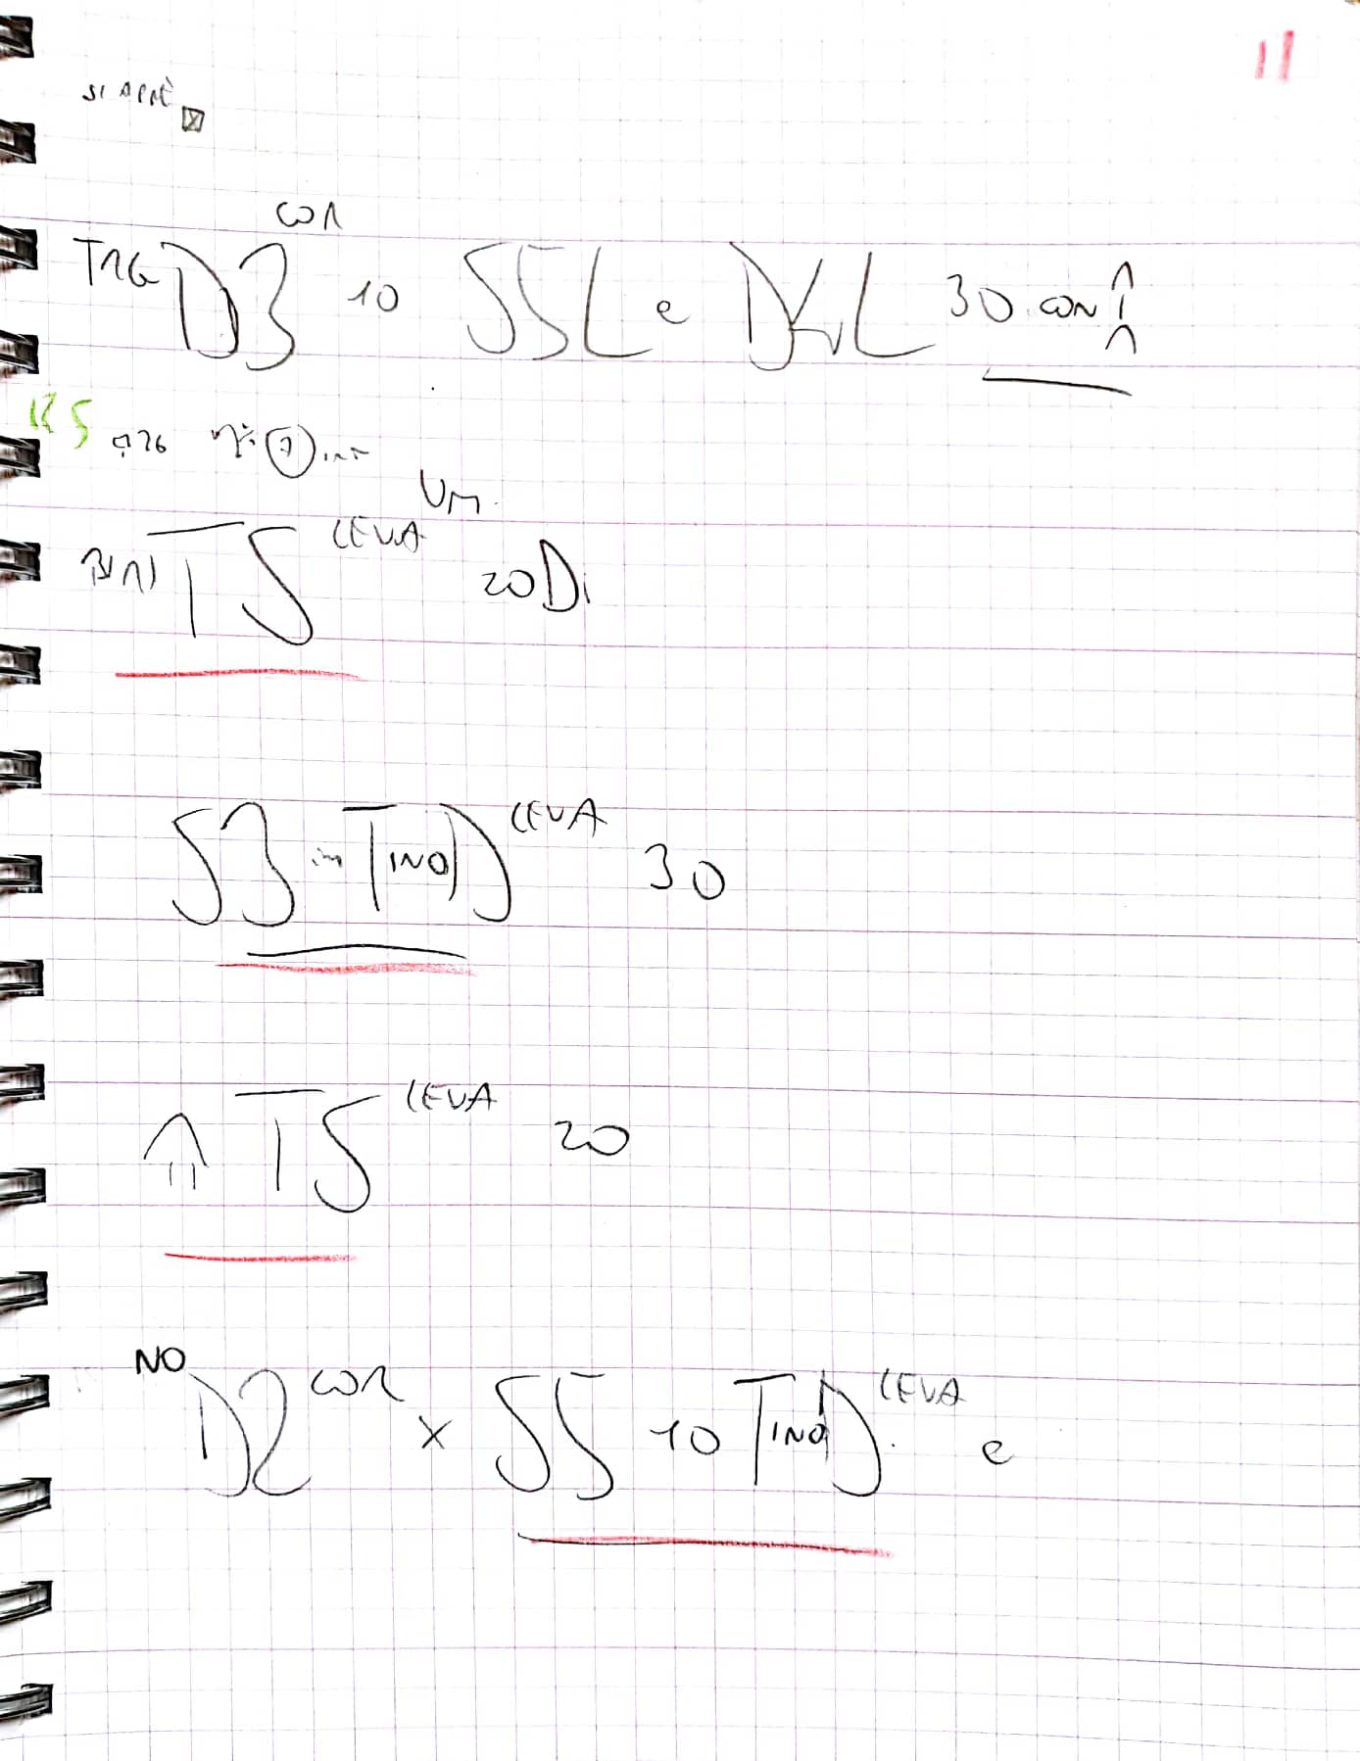 11
SI APRE
COR
TRG D3 10 SSL e DXL 30 CON
K5 926 7
VM
BIRI TS LEVA 20 Di
S3 in TINO D LEVA 30
⇑ TS LEVA 20
NO D2 COR x SS 10 TINO D LEVA e